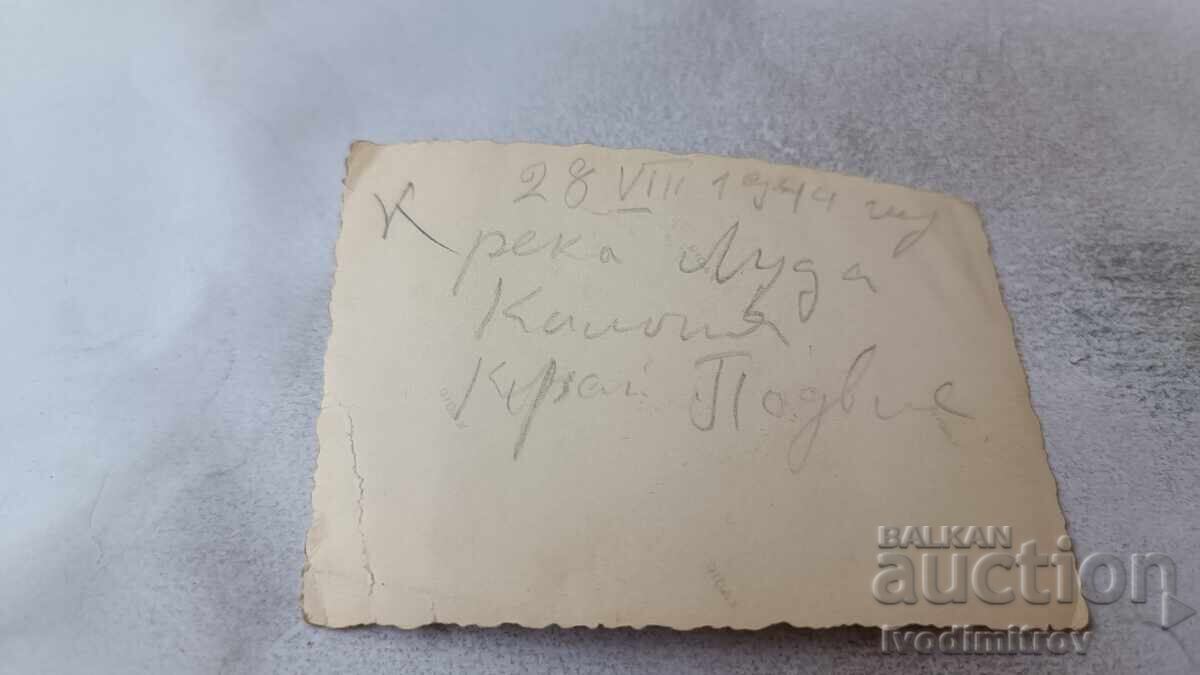 28 VIII 1944 год
К река Луда
Камчия
Край Подвис
BALKAN
auction
Ivodimitrov